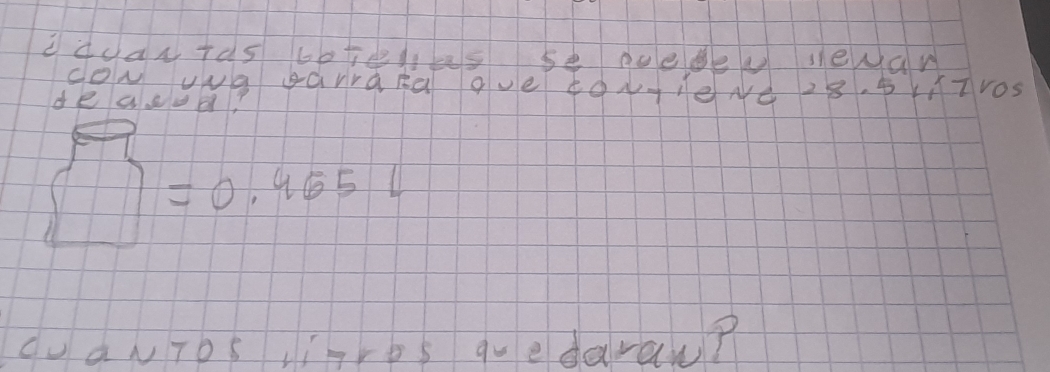 ¿cuantas botellas se pueden llenar
con una garrafa que contiene 28.5 litros
de agua?
= 0.465 L
cuantos litros quedaran?